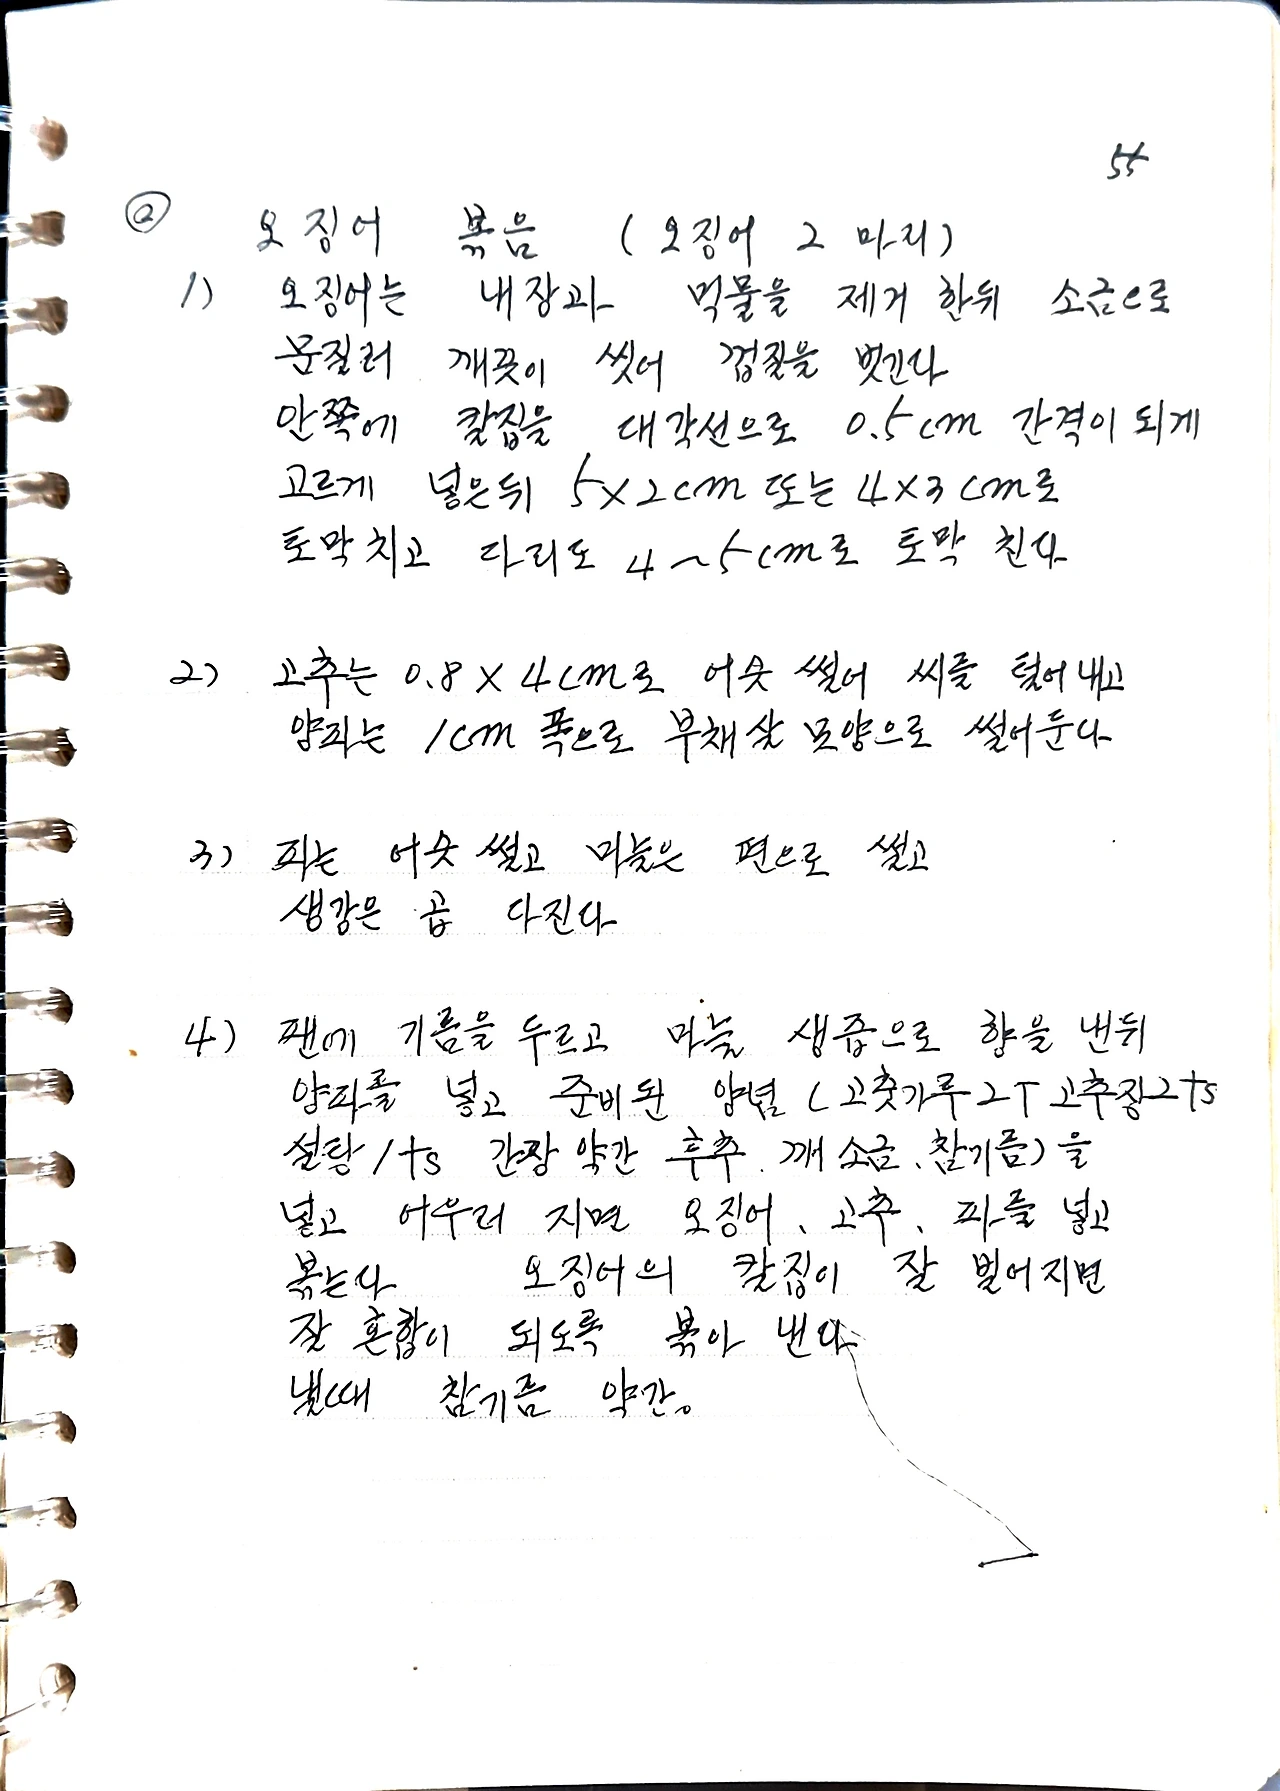 55
@ 오징어 볶음 (오징어 2 마리)
1) 오징어는 내장과 먹물을 제거 한뒤 소금으로
문질러 깨끗이 씻어 껍질을 벗긴다
안쪽에 칼집을 대각선으로 0.5cm 간격이 되게
고르게 넣은뒤 5×2cm 또는 4×3cm로
토막치고 다리도 4~5cm로 토막 친다
2) 고추는 0.8×4cm로 어슷 썰어 씨를 털어내고
양파는 1cm 폭으로 부채살 모양으로 썰어둔다
3) 파는 어슷 썰고 마늘은 편으로 썰고
생강은 곱 다진다
4) 팬에 기름을 두르고 마늘 생즙으로 향을 낸뒤
양파를 넣고 준비된 양념 (고춧가루2T 고추장2ts
설탕1ts 간장 약간 후추. 깨소금、참기름)을
넣고 어우러 지면 오징어、고추、파를 넣고
볶는다 오징어의 칼집이 잘 벌어지면
잘 혼합이 되도록 볶아 낸다
낼때 참기름 약간。